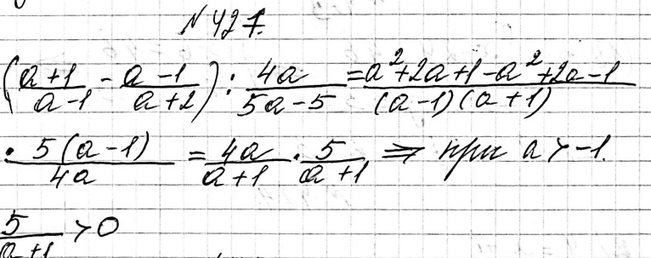 № 427.
(a+1/a-1 - a-1/a+2) : 4a/5a-5 = a²+2a+1-a²+2a-1/(a-1)(a+1)
· 5(a-1)/4a = 4a/a+1 · 5/a+1 ⇒ при a > -1.
5/a+1 > 0